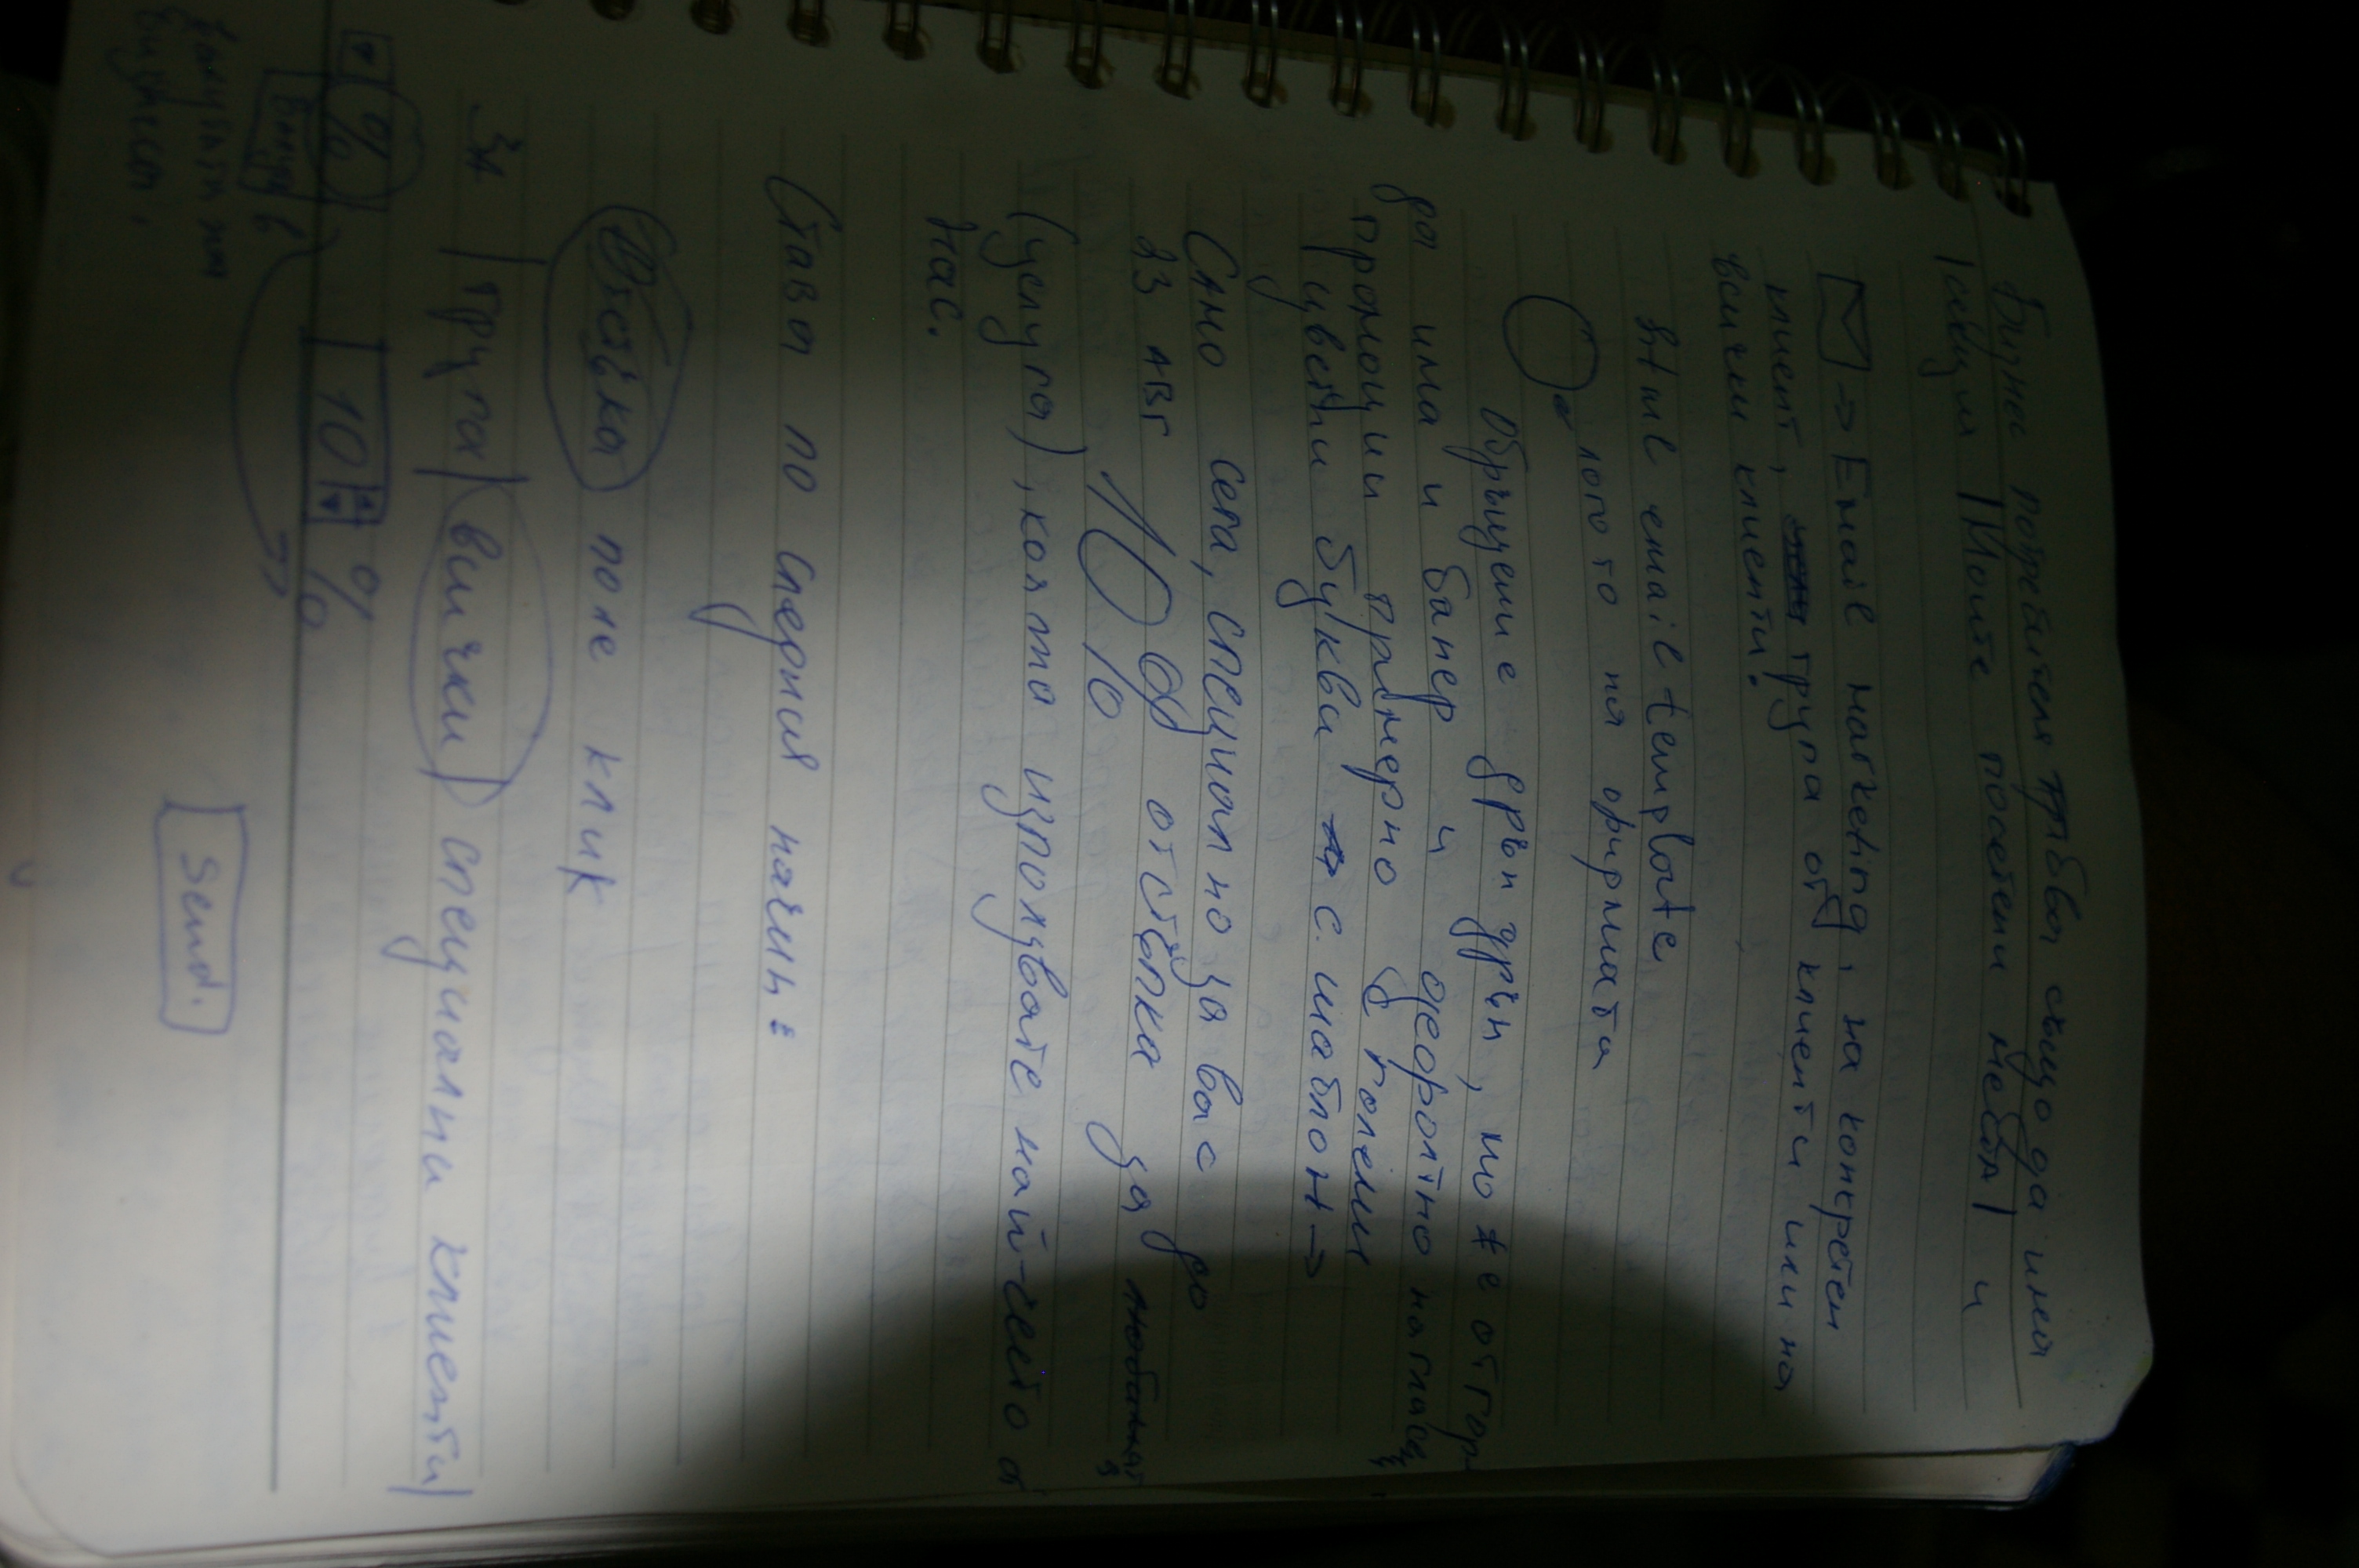 Бизнес потребителя трябва също да има
секция |Моите посетени места| и
→ Email marketing, на конкретен
клиент, група от клиенти или на
всички клиенти!
html email template
лого то на фирмата
Обръщение дрън дрън, може отгор
ра има и банер и 
промоции примерно с големи
цветни букви с шаблон →
Само сега, специално за вас до
23 авг 10% отстъпка за любимата
(услуга), която използвате най-често от
нас.
Става по следния начин:
Отстъпка поле клик
За |група| всички| специални клиенти|
% 10 %
Бонус в
Send.